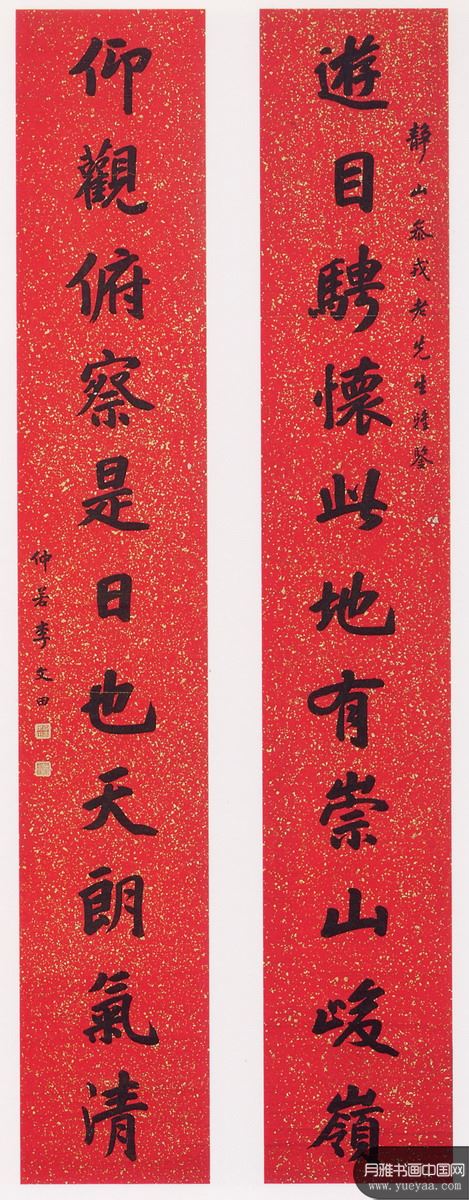 靜山
老先生
遊目騁懷此地有崇山峻嶺
仰觀俯察是日也天朗氣清
仲若李文田
月雅书画中国网
www.yueyaa.com